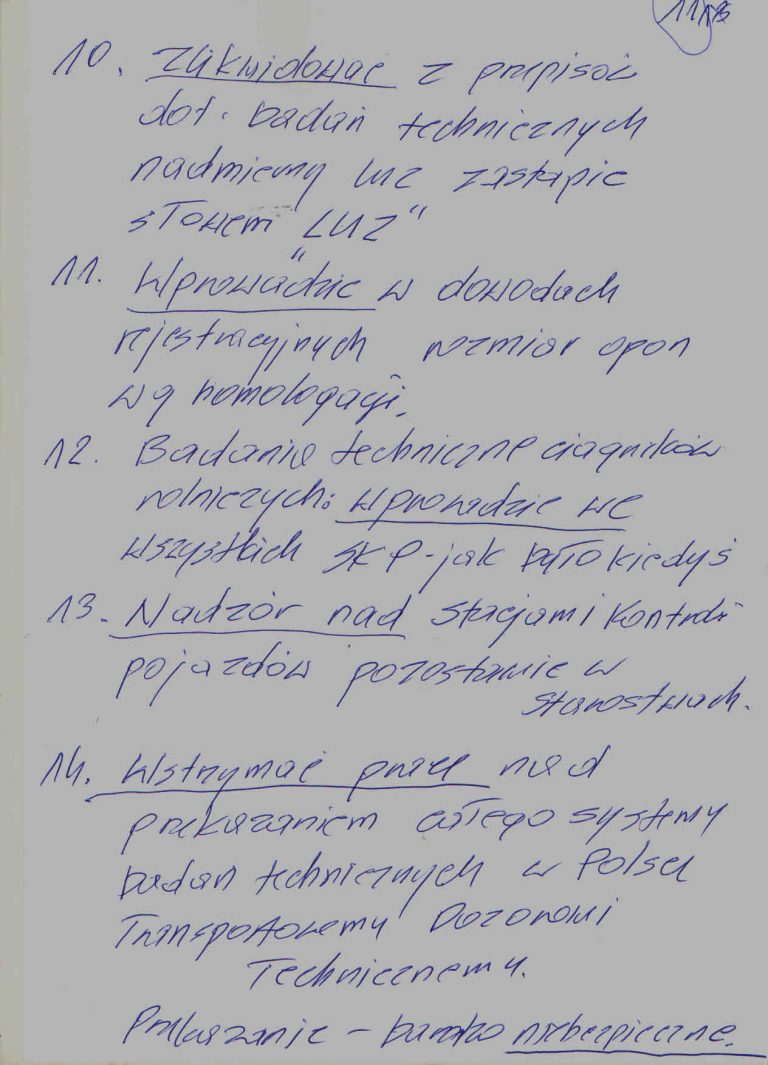 10. Zlikwidować z przepisów
dot. badań technicznych
nadmierny luz zastąpić
słowem „LUZ"
11. Wprowadzić w dowodach
rejestracyjnych rozmiar opon
wg homologacji.
12. Badanie techniczne ciągników
rolniczych: wprowadzić we
wszystkich SKP - jak było kiedyś
13. Nadzór nad stacjami kontroli
pojazdów pozostawić w
starostwach.
14. Wstrzymać prace nad
przekazaniem całego systemu
badań technicznych w Polsce
Transportowemu Dozorowi
Technicznemu.
Przekazanie - bardzo niebezpieczne.